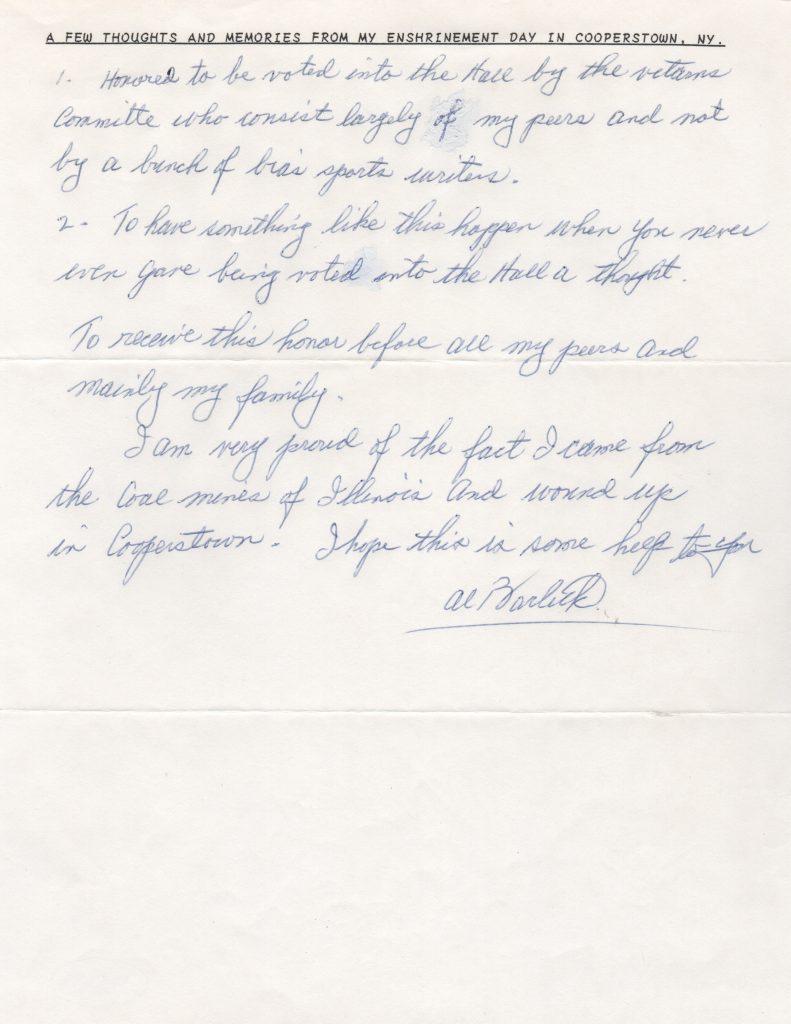 A FEW THOUGHTS AND MEMORIES FROM MY ENSHRINEMENT DAY IN COOPERSTOWN, NY.
1. Honored to be voted into the Hall by the vetrans
Committe who consist largely of my peers and not
by a bunch of bias sports writers.
2- To have something like this happen when you never
even gave being voted into the Hall a thought.
To receive this honor before all my peers and
mainly my family.
I am very proud of the fact I came from
the coal mines of Illinois and wound up
in Cooperstown. I hope this is some help to you
Al Barlick